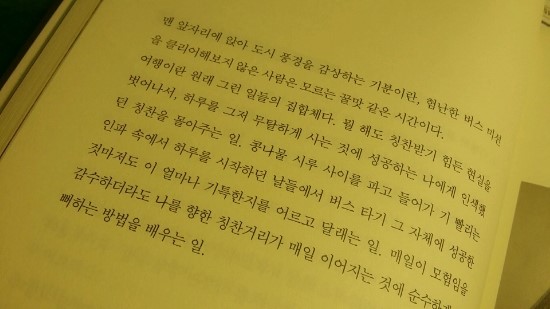 맨 앞자리에 앉아 도시 풍경을 감상하는 기분이란, 험난한 버스 미션
을 클리어해보지 않은 사람은 모르는 꿀맛 같은 시간이다.
여행이란 원래 그런 일들의 집합체다. 뭘 해도 칭찬받기 힘든 현실을
벗어나서, 하루를 그저 무탈하게 사는 것에 성공하는 나에게 인색했
던 칭찬을 몰아주는 일. 콩나물 시루 사이를 파고 들어가 기 빨리는
인파 속에서 하루를 시작하던 날들에서 버스 타기 그 자체에 성공한
것마저도 이 얼마나 기특한지를 어르고 달래는 일. 매일이 모험임을
감수하더라도 나를 향한 칭찬거리가 매일 이어지는 것에 순수하게
삐하는 방법을 배우는 일.